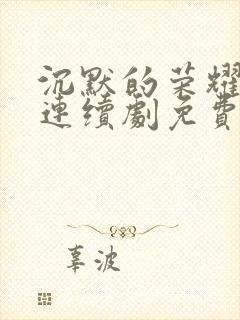 沉默的荣耀
連續劇免費
辜波